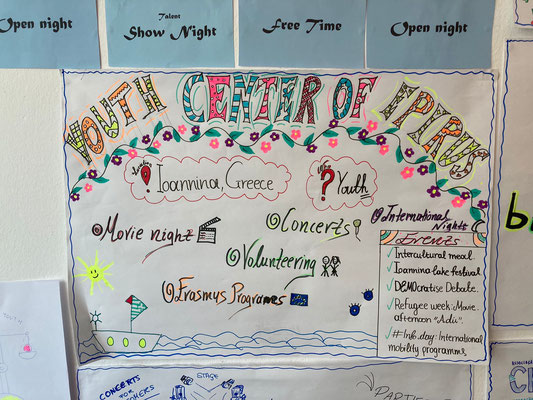 Open night
Talent
Show Night
Free Time
Open night
YOUTH CENTER OF IPIRUS
Ioannina, Greece
Youth
Movie night
Concerts
International
Nights
Volunteering
Erasmus Programes
Events
✓ Intercultural meal.
✓ Ioannina lake festival
✓ DEMOcratise Debate.
✓ Refugee week: Movie
afternoon "Adú".
✓ # Info.day: International
mobility programms
CONCERTS
FOR
STAGE